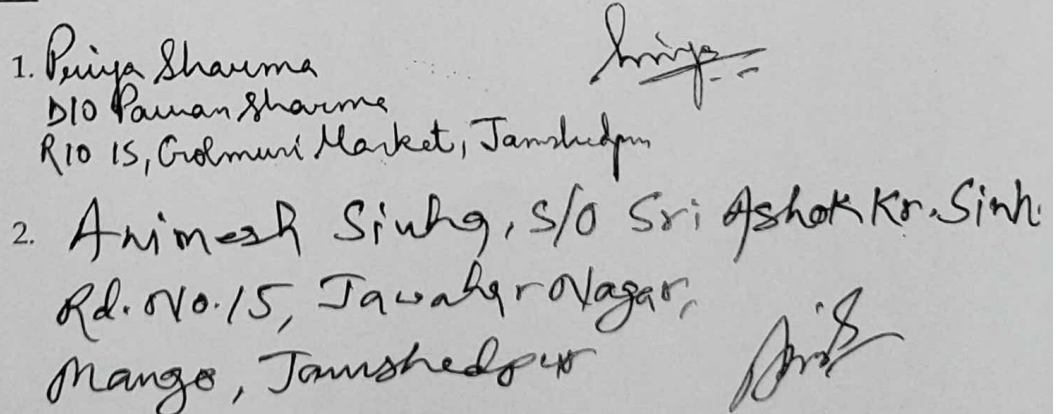 1. Priya Sharma
Priya
D/O Pawan Sharma
R/O 15, Golmuri Market, Jamshedpur
2. Animesh Sinha, S/O Sri Ashok Kr. Sinh
Rd. No. 15, Jawahar Nagar,
Mango, Jamshedpur